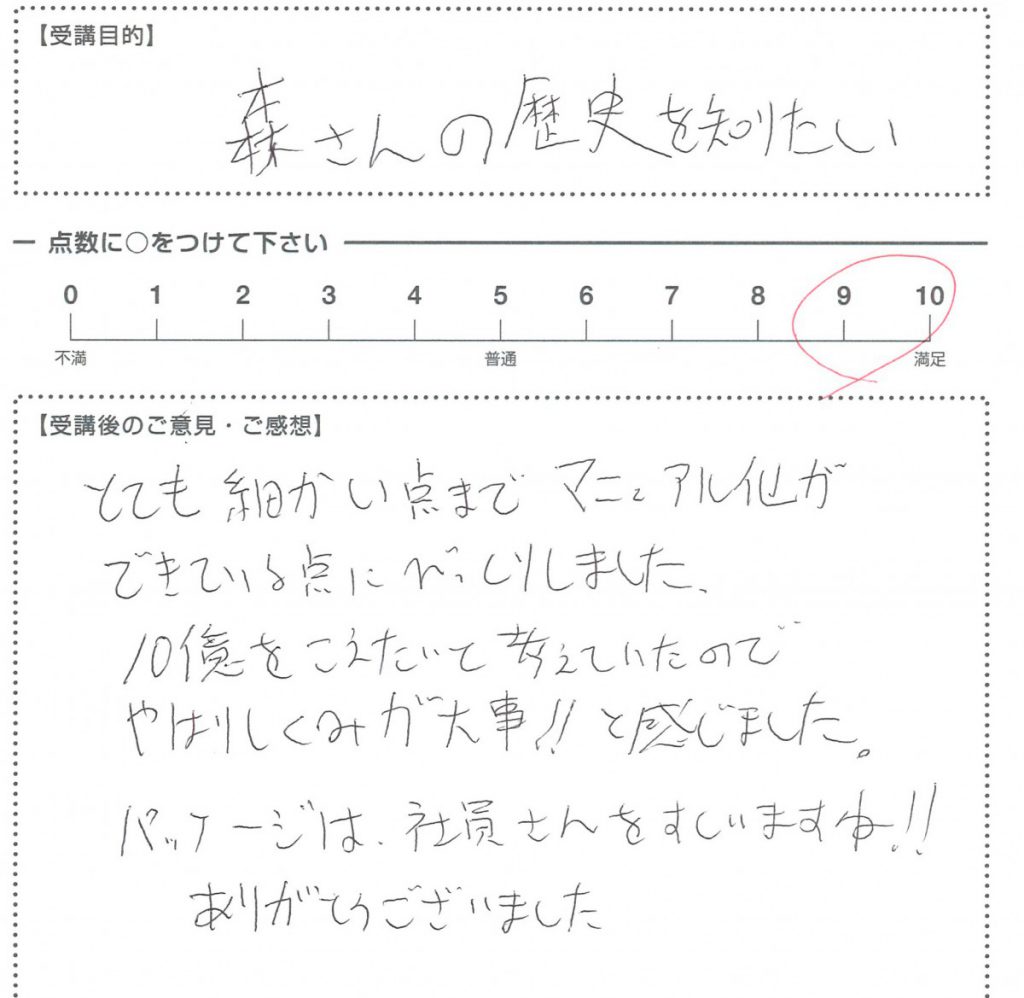 【受講目的】
森さんの歴史を知りたい
点数に○をつけて下さい
0 1 2 3 4 5 6 7 8 9 10
不満 普通 満足
【受講後のご意見・ご感想】
とても細かい点までマニュアル化が
できている点にびっくりしました、
10億をこえたいと考えていたので
やはりしくみが大事!!と感じました。
パッケージは、社員さんを
ありがとうございました